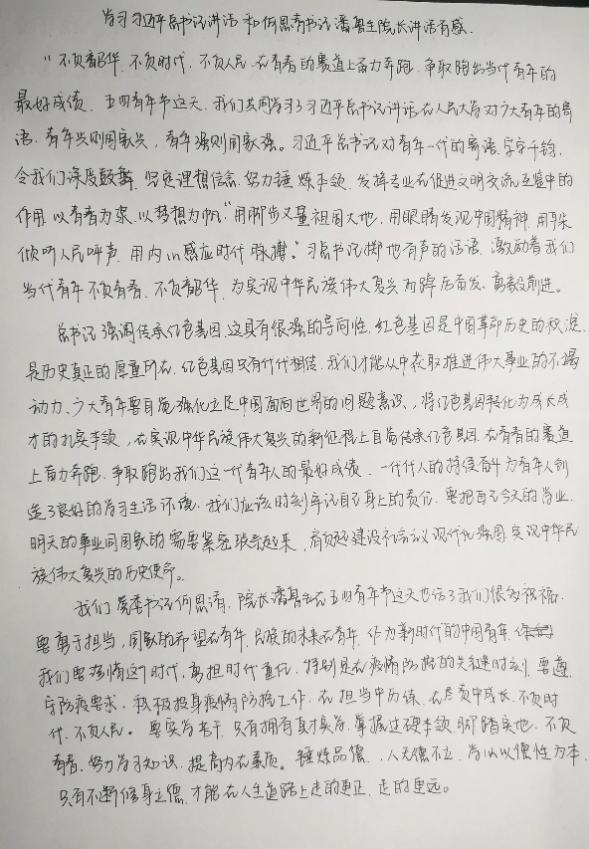 学习习近平总书记讲话和何思青书记潘善生院长讲话有感.
"不负韶华、不负时代、不负人民、在青春的赛道上奋力奔跑、争取跑出当代青年的
最好成绩. 五四青年节这天、我们共同学习了习近平总书记讲话、在人民大学对广大青年的寄
语、青年兴则国家兴, 青年强则国家强。习近平总书记对青年一代的寄语、字字千钧、
令我们深度鼓舞、坚定理想信念、努力锤炼本领、发挥专业在促进文明交流互鉴中的
作用、以青春为桨、以梦想为帆、"用脚步丈量祖国大地、用眼睛发现中国精神、用耳朵
倾听人民呼声、用内心感应时代脉搏。"习总书记掷地有声的话语、激励着我们
当代青年不负青春、不负韶华、为实现中华民族伟大复兴而踔厉奋发、勇毅前进。
总书记强调传承红色基因、这具有很强的导向性. 红色基因是中国革命历史的积淀、
是历史真正的厚重所在、红色基因只有代代相传、我们才能从中获取推进伟大事业的不竭
动力、广大青年要自觉强化立足中国面向世界的问题意识, 将红色基因转化为成长成
才的扎实本领, 在实现中华民族伟大复兴的新征程上自觉传承红色基因、在青春的赛道
上奋力奔跑、争取跑出我们这一代青年人的最好成绩. 一代代人的接续奋斗为青年人创
造了良好的学习生活环境、我们应该时刻牢记自己身上的责任、要把自己今天的学业、
明天的事业同国家的需要紧密联系起来, 肩负起建设社会主义现代化强国、实现中华民
族伟大复兴的历史使命。
我们党委书记何思清、院长潘善生在五四青年节这天也给了我们很多祝福.
要勇于担当, 国家的希望在青年、民族的未来在青年、作为新时代的中国青年、
我们要珍惜这个时代、勇担时代重任、特别是在疫情防控的关键时刻、要遵
守防疫要求、积极投身疫情防控工作、在担当中历练、在尽责中成长、不负时
代、不负人民。要实学苦干、只有拥有真才实学、掌握过硬本领、脚踏实地、不负
青春、努力学习知识、提高内在素质。锤炼品德、人无德不立、当以德性为本、
只有不断修身立德、才能在人生道路上走的更正、走的更远。